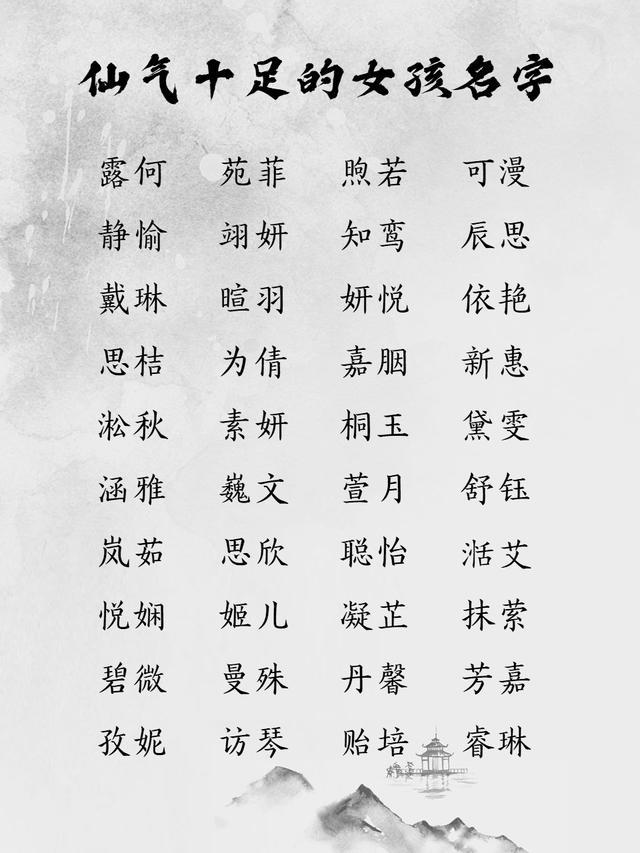 仙气十足的女孩名字
露何 苑菲 煦若 可漫
静愉 翊妍 知鸾 辰思
戴琳 暄羽 妍悦 依艳
思桔 为倩 嘉胭 新惠
淞秋 素妍 桐玉 黛雯
涵雅 巍文 萱月 舒钰
岚茹 思欣 聪怡 湉艾
悦娴 姬儿 凝芷 抹萦
碧微 曼殊 丹馨 芳嘉
孜妮 访琴 贻培 睿琳